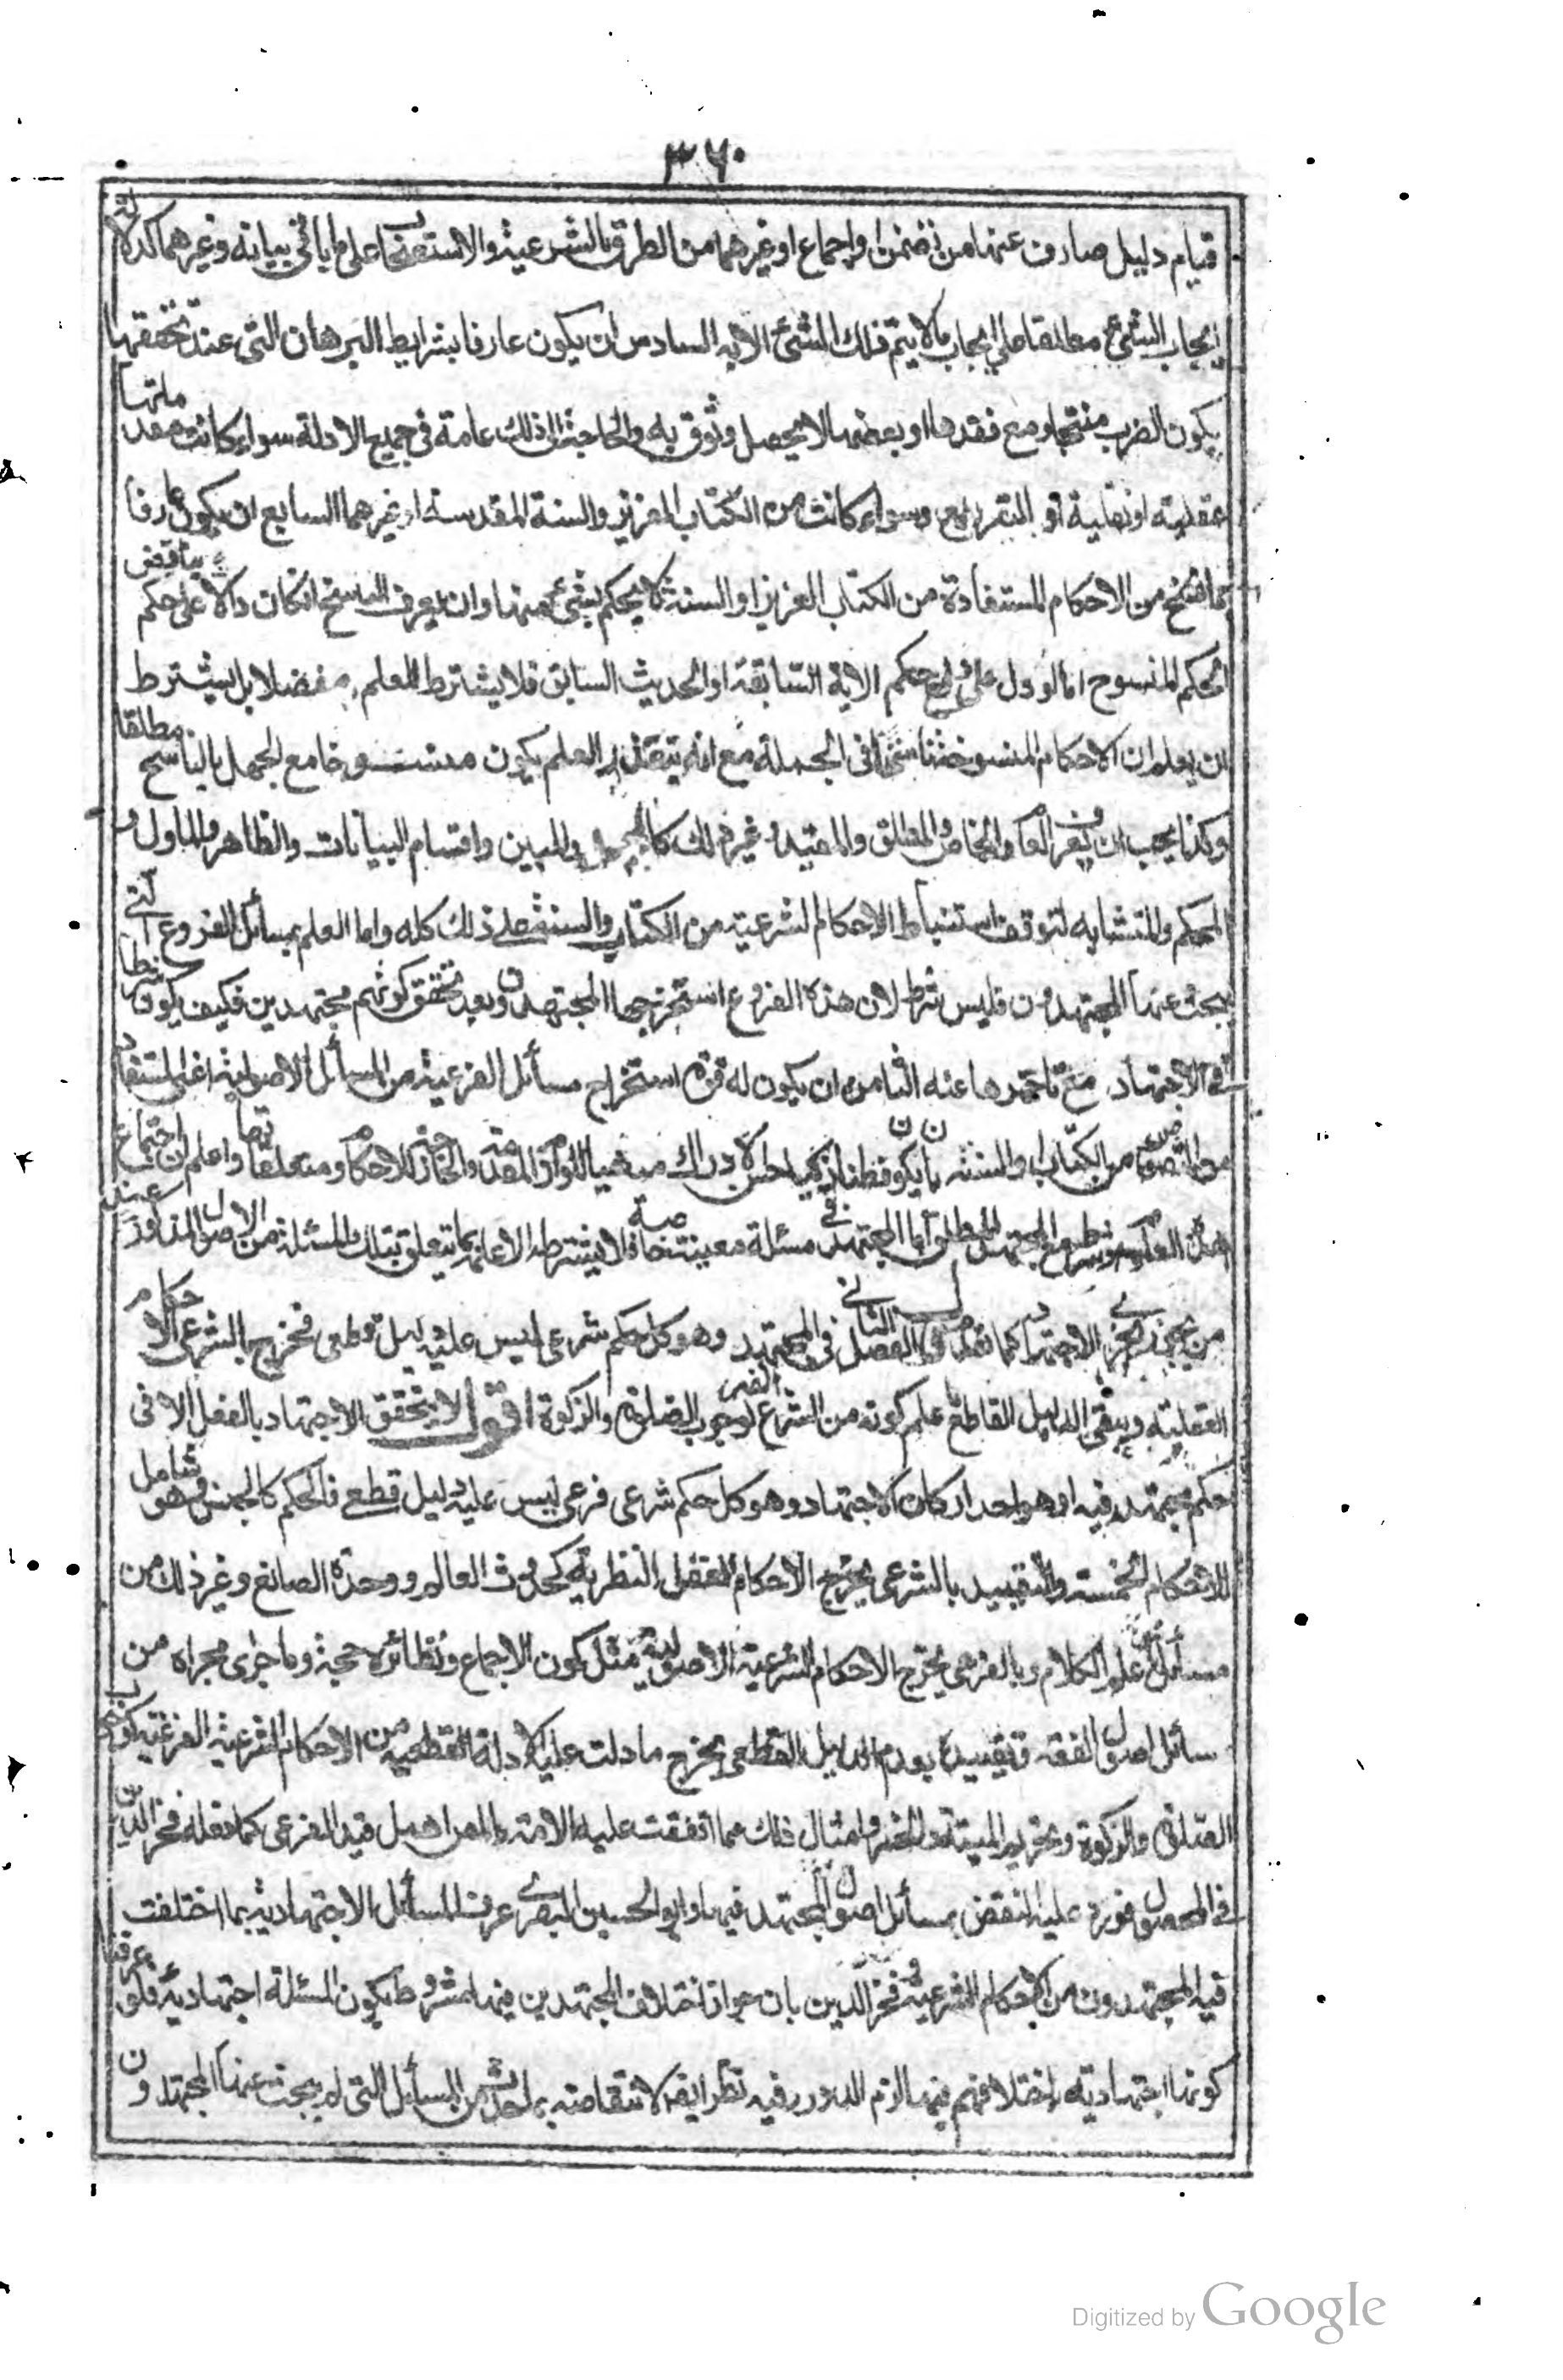 ٣٦٠
قيام دليل صارف عنها من نص او اجماع او غيرهما من الطرق الشرعية والاستصحاب على ما ياتى بيانه وغيرهما كدلالة
ايجاب الشئ مطلقا على ايجاب ما لا يتم ذلك الشئ الا به السادس ان يكون عارفا بشرايط البرهان التى عند تحققها
يكون الضرب منتجا ومع فقدها او بعضها لا يحصل وثوق به والحاجة الى ذلك عامة فى جميع الادلة سواء كانت مقدماتها
عقلية او نقلية او بالتفريع وسواء كانت من الكتاب العزيز والسنة المقدسة او غيرهما السابع ان يكون عارفا
بما نسخ من الاحكام المستفادة من الكتاب العزيز او السنة لئلا يحكم بشئ منها وان يعرف الناسخ ان كان دالا على حكم يناقض
الحكم المنسوخ اما لو دل على رفع حكم الاية السابقة او الحديث السابق فلا يشترط العلم به مفصلا بل يشترط
ان يعلم ان الاحكام المنسوخة ناسخا فى الجملة مع انه يتعذر العلم بكون منسوخا مع الجهل بالناسخ مطلقا
وكذا يجب ان يعرف العام والخاص والمطلق والمقيد وغير ذلك كالمجمل والمبين واقسام البيانات والظاهر والماول و
المحكم والمتشابه لتوقف استنباط الاحكام الشرعية من الكتاب والسنة على ذلك كله واما العلم بمسائل الفروع التى
يبحث عنها المجتهدون فليس شرطا لان هذه الفروع استخرجها المجتهدون وبعد تحقق كونهم مجتهدين فكيف يكون شرطا
فى الاجتهاد مع تاخرها عنه الثامن ان يكون له قوة استخراج مسائل الفرعية من المسائل الاصولية اعنى المستفاد
من النصوص من الكتاب والسنة بان يكون فطنا زكيا حسن الادراك للاحكام ومتعلقاتها واعلم ان اجتماع
هذه العلوم شرط فى المجتهد المطلق اما المجتهد فى مسئلة معينة خاصة فلا يشترط الا علمه بما يتعلق بتلك المسئلة من الاصول المذكورة عند
من يجوز تجزى الاجتهاد كما تقدم قال الفصل الثانى فى المجتهد وهو كل حكم شرعى ليس عليه دليل قطعى فخرج بالشرعى الاحكام
العقلية وبنفى الدليل القاطع علم كونه من الشرع لوجوب الصلوة والزكوة اقول لا يتحقق الاجتهاد بالفعل الا فى
حكم مجتهد فيه اذ هو احد اركان الاجتهاد وهو كل حكم شرعى فرعى ليس عليه دليل قطعى فالحكم كالجنس وهو شامل
للاحكام الخمسة والتقييد بالشرعى يخرج الاحكام العقلية النظرية كحدوث العالم ووحدة الصانع وغير ذلك من
مسائل علم الكلام وبالفرعى يخرج الاحكام الشرعية الاصولية مثل كون الاجماع ونظائره حجة وما جرى مجراه من
مسائل اصول الفقه وتقييده بعدم الدليل القطعى يخرج ما دلت عليه الادلة القطعية من الاحكام الشرعية الفرعية كوجوب
الصلوة والزكوة وتحريم الميتة والخمر وامثال ذلك مما اتفقت عليه الامة والمص اهمل قيد الفرعى كما فعله فخر الدين
فى المحصول فورد عليه النقض بمسائل اصول المجتهد فيها وابو الحسين البصرى عرف المسائل الاجتهادية بما اختلفت
فيه المجتهدون من الاحكام الشرعية فخر الدين بان جواز اختلاف المجتهدين فيها مشروط بكون المسئلة اجتهادية فلو عرفنا
كونها اجتهادية باختلافهم فيها لزم الدور وفيه نظر ايضا لانتقاضه من المسائل التى لم يبحث عنها المجتهدون
Digitized by Google